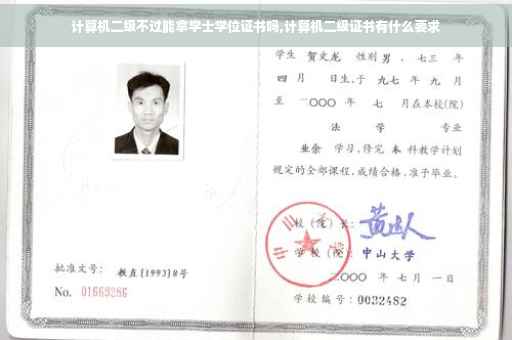 计算机二级不过能拿学士学位证书吗,计算机二级证书有什么要求
学生 贺文龙 性别 男 、七三 年
四 月 日生,于 九七 年 九 月
至 二〇〇〇 年 七 月在本校(院)
法 学 专业
业余 学习,修完 本 科教学计划
规定的全部课程,成绩合格,准予毕业。
校（院）长:
学 校（院）: 中山大学
二〇〇〇 年 七 月 一 日
学校编号: 0032482
批准文号: 教直[1993]8号
No. 01663286